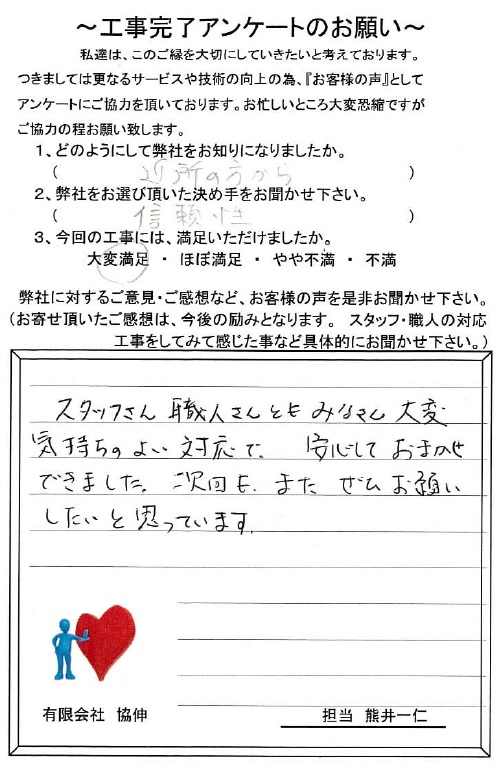 ～工事完了アンケートのお願い～
私達は、このご縁を大切にしていきたいと考えております。
つきましては更なるサービスや技術の向上の為、『お客様の声』として
アンケートにご協力を頂いております。お忙しいところ大変恐縮ですが
ご協力の程お願い致します。
1、どのようにして弊社をお知りになりましたか。
（ 近所の方から ）
2、弊社をお選び頂いた決め手をお聞かせ下さい。
（ 信頼性 ）
3、今回の工事には、満足いただけましたか。
大変満足 ・ ほぼ満足 ・ やや不満 ・ 不満
弊社に対するご意見・ご感想など、お客様の声を是非お聞かせ下さい。
（お寄せ頂いたご感想は、今後の励みとなります。 スタッフ・職人の対応
工事をしてみて感じた事など具体的にお聞かせ下さい。）
スタッフさん 職人さんとも みなさん 大変
気持ちのよい 対応で、 安心して おまかせ
できました。次回も、また ぜひ お願い
したいと思っています。
有限会社 協伸
担当 熊井一仁